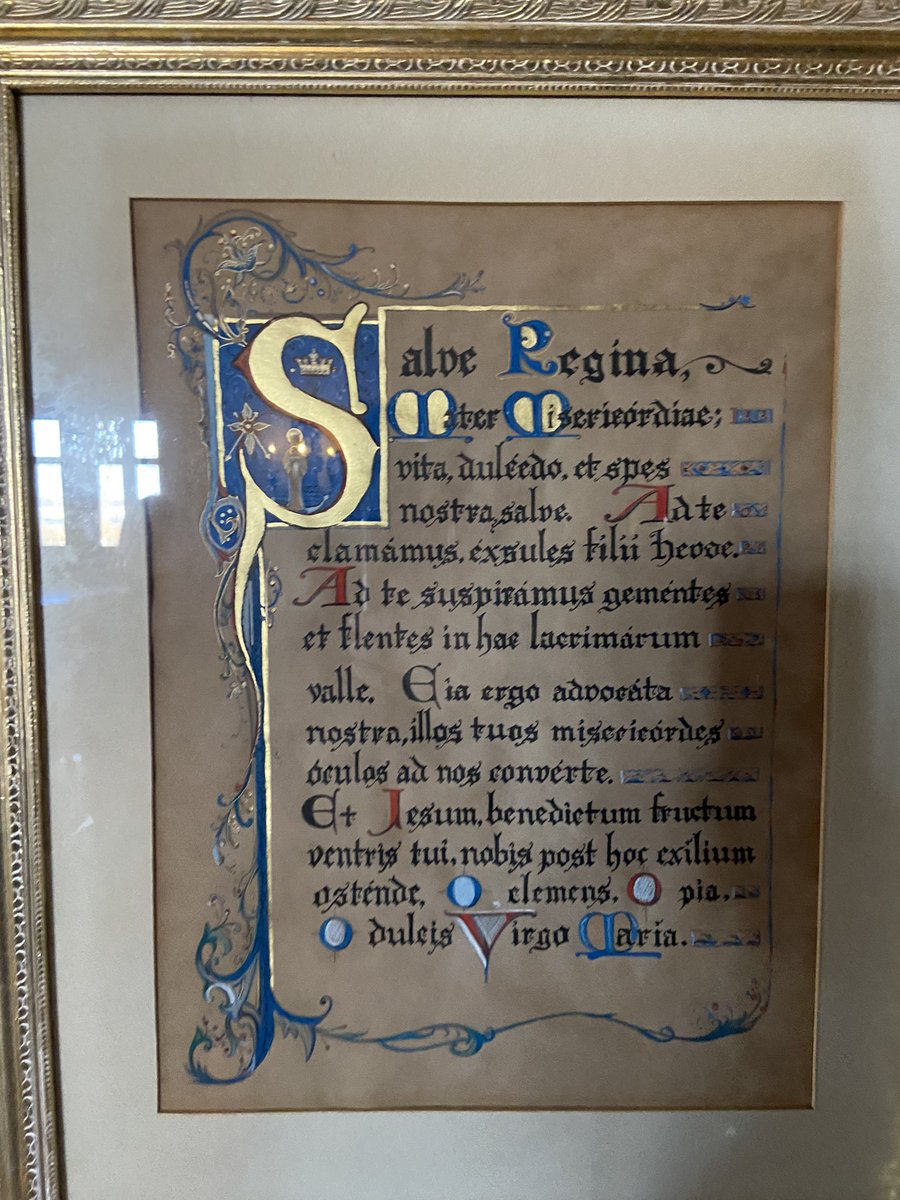 Salve Regina,
Mater Misericórdiae;
vita, dulcédo, et spes
nostra, salve. Ad te
clamámus, éxsules filii Hevae.
Ad te suspirámus geméntes
et flentes in hac lacrimárum
valle. Eia ergo advocáta
nostra, illos tuos misericórdes
óculos ad nos convérte.
Et Jesum, benedictum fructum
ventris tui, nobis post hoc exílium
osténde, O clemens, O pia,
O dulcis Virgo María.